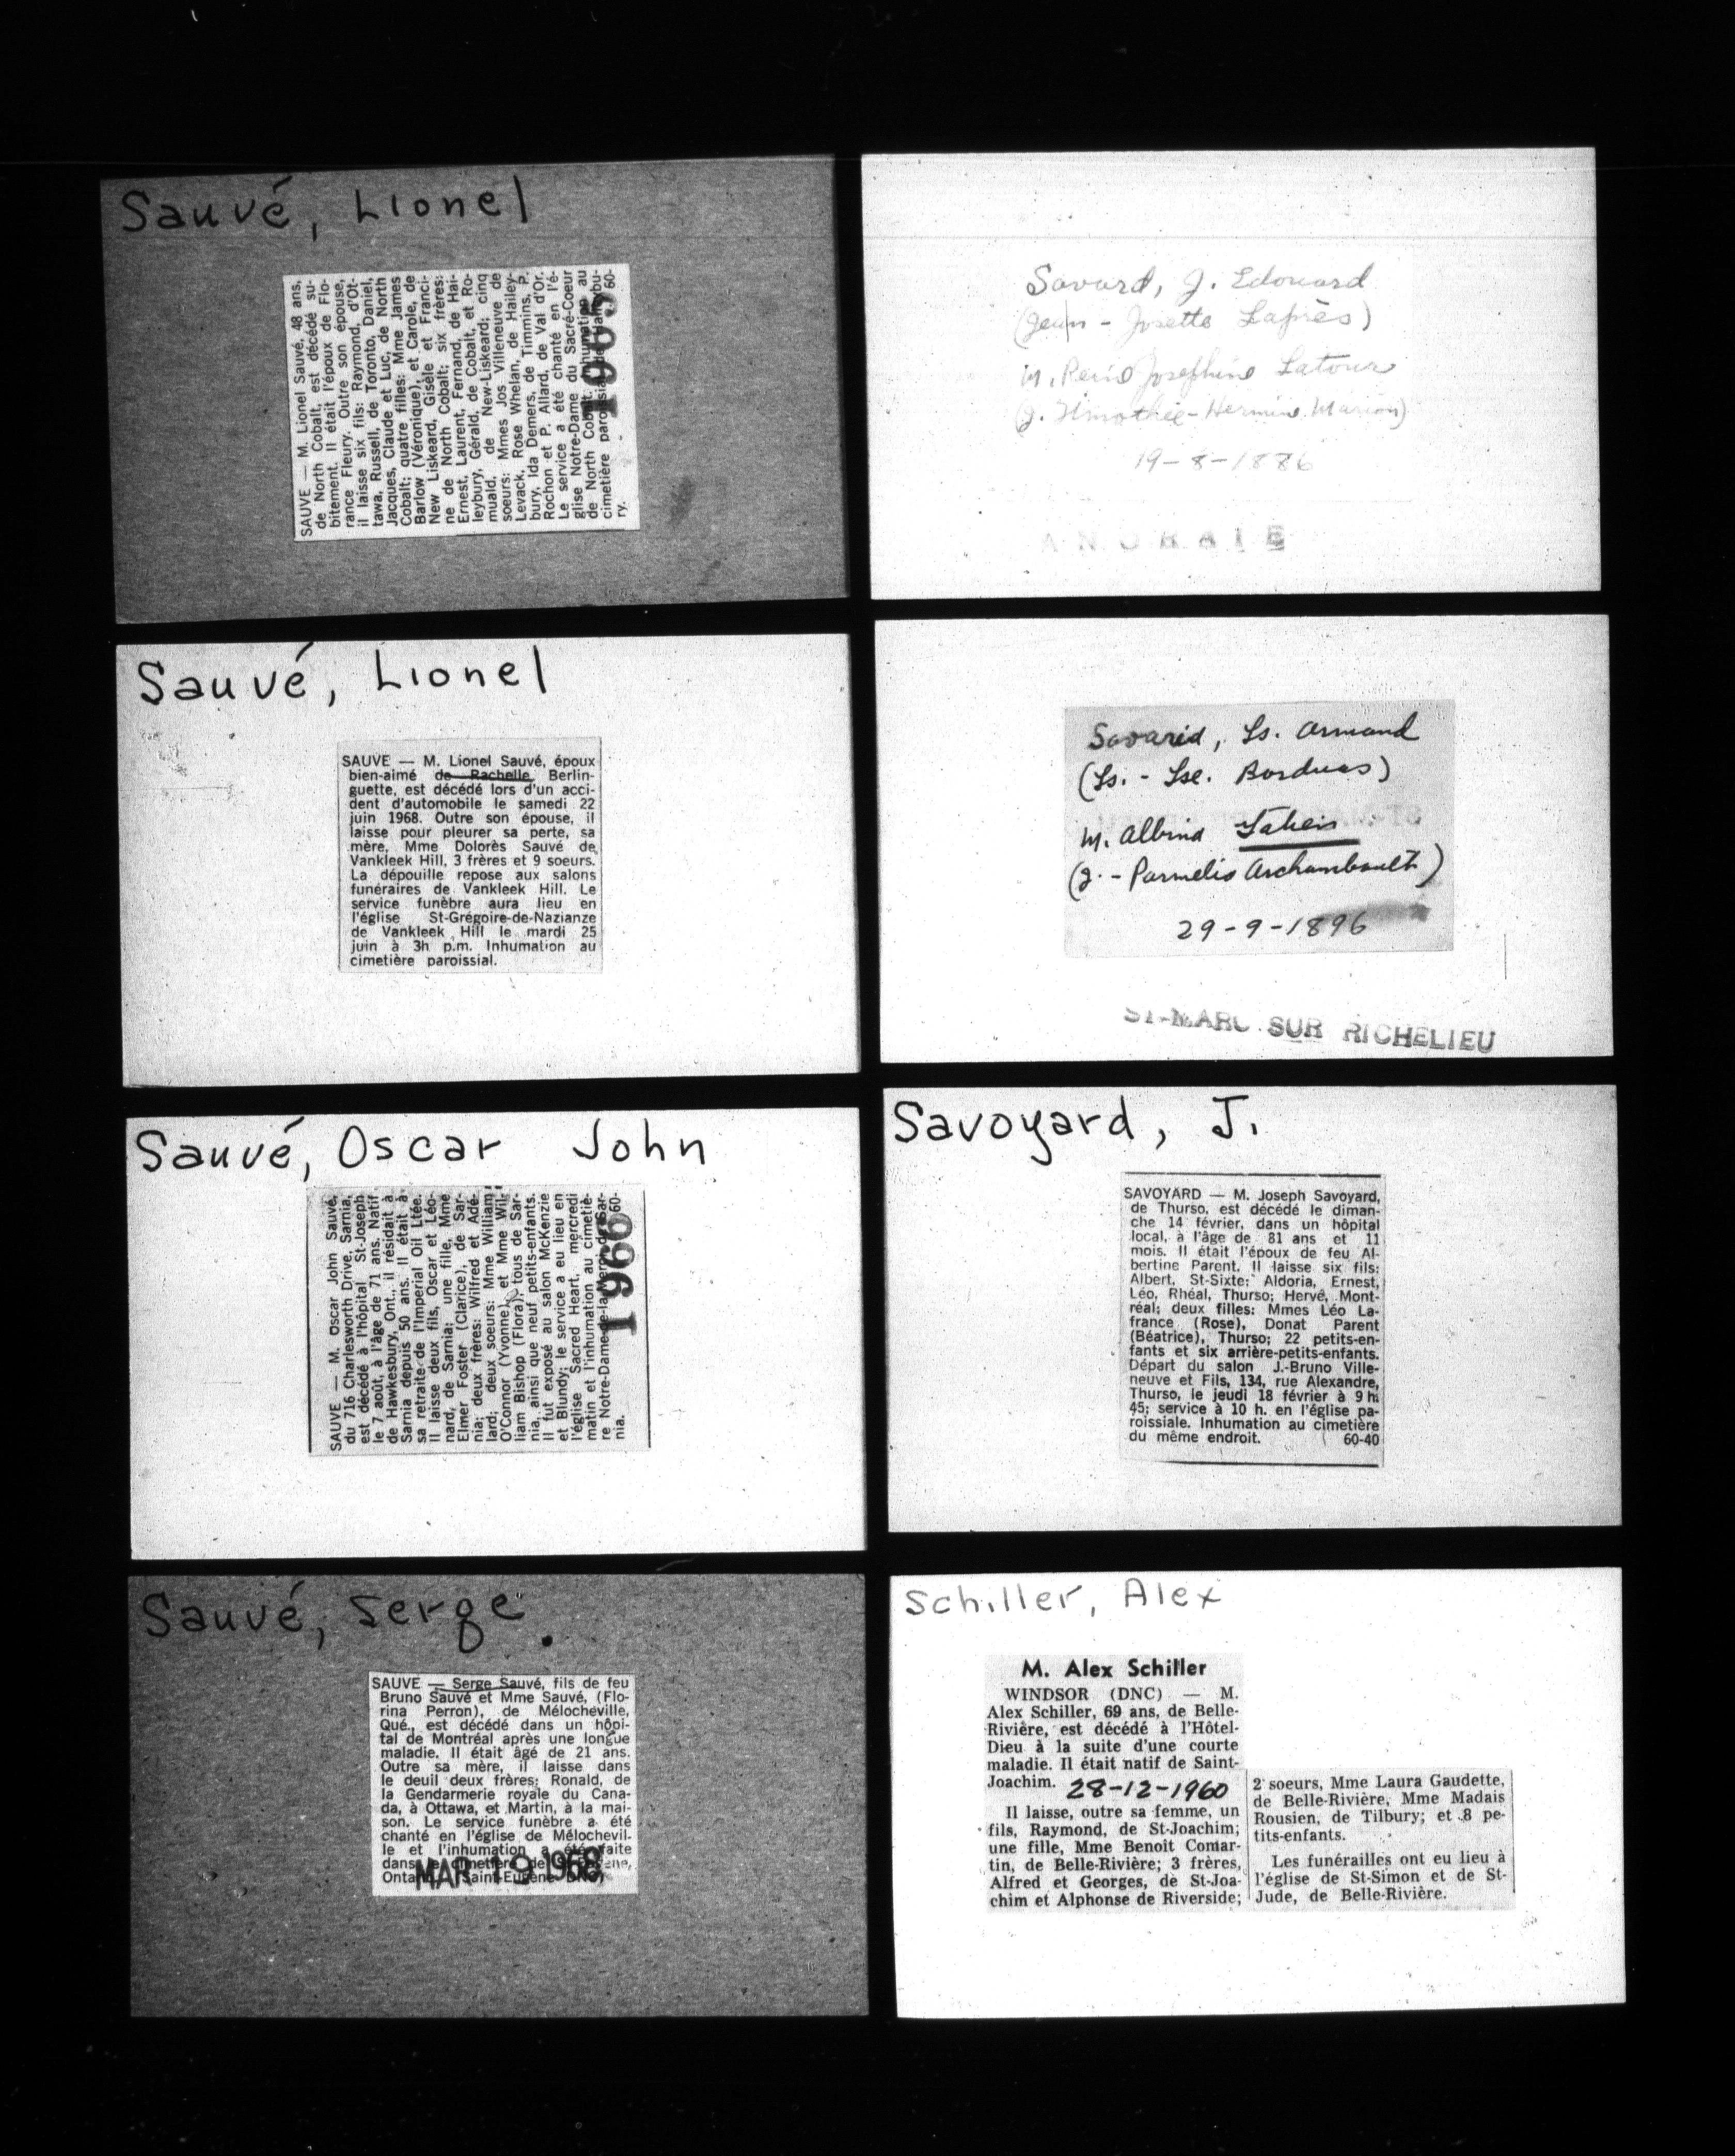 Sauvé, Lionel
SAUVE — M. Lionel Sauvé, 48 ans,
de North Cobalt, est décédé su-
bitement. Il était l'époux de Flo-
rance Fleury. Outre son épouse,
il laisse six fils: Raymond, d'Ot-
tawa, Russell, de Toronto, Daniel,
Jacques, Claude et Luc, de North
Cobalt; quatre filles: Mme James
Barlow (Véronique), et Carole, de
New Liskeard, Gisèle et Franci-
ne de North Cobalt; six frères:
Ernest, Laurent, Fernand, de Hai-
leybury, Gérald, de Cobalt, et Ro-
muald, de New-Liskeard; cinq
soeurs: Mmes Jos Villeneuve de
Levack, Rose Whelan, de Hailey-
bury, Ida Demers, de Timmins, P.
Rochon et P. Allard, de Val d'Or.
Le service a été chanté en l'é-
glise Notre-Dame du Sacré-Coeur
de North Cobalt. Inhumation au
cimetière paroissial de Haileybu-
ry. 60-
1965
Sauvé, Lionel
SAUVE — M. Lionel Sauvé, époux
bien-aimé de Rachelle Berlin-
guette, est décédé lors d'un acci-
dent d'automobile le samedi 22
juin 1968. Outre son épouse, il
laisse pour pleurer sa perte, sa
mère, Mme Dolorès Sauvé de
Vankleek Hill, 3 frères et 9 soeurs.
La dépouille repose aux salons
funéraires de Vankleek Hill. Le
service funèbre aura lieu en
l'église St-Grégoire-de-Nazianze
de Vankleek Hill le mardi 25
juin à 3h p.m. Inhumation au
cimetière paroissial.
Sauvé, Oscar John
SAUVE — M. Oscar John Sauvé,
du 716 Charlesworth Drive, Sarnia,
est décédé à l'hôpital St-Joseph
le 7 août, à l'âge de 71 ans. Natif
de Hawkesbury, Ont., il résidait à
Sarnia depuis 50 ans. Il était à
sa retraite de l'Imperial Oil Ltée.
Il laisse deux fils, Oscar et Léo-
nard, de Sarnia; une fille, Mme
Elmer Foster (Clarice), de Sar-
nia; deux frères: Wilfred et Adé-
lard; deux soeurs: Mme William
O'Connor (Yvonne), et Mme Wil-
liam Bishop (Flora), tous de Sar-
nia, ainsi que neuf petits-enfants.
Il fut exposé au salon McKenzie
et Blundy; le service a eu lieu en
l'église Sacred Heart, mercredi
matin et l'inhumation au cimetiè-
re Notre-Dame-de-la-Merci, de Sar-
nia. 60-
1966
Sauvé, Serge.
SAUVE — Serge Sauvé, fils de feu
Bruno Sauvé et Mme Sauvé, (Flo-
rina Perron), de Mélocheville,
Qué., est décédé dans un hôpi-
tal de Montréal après une longue
maladie. Il était âgé de 21 ans.
Outre sa mère, il laisse dans
le deuil deux frères: Ronald, de
la Gendarmerie royale du Cana-
da, à Ottawa, et Martin, à la mai-
son. Le service funèbre a été
chanté en l'église de Mélochevil-
le et l'inhumation a été faite
dans le cimetière de
(Saint-Eugène DNC)
MAR 19 1968
Savard, J. Edouard
(Jean - Josette Laprès)
M. Josephine Latour
(J. Timothée - Hermine Marion)
19-8-1886
Savarid, Ls. Armand
(Ls. - Lse. Borduas)
M. Albina Taheis
(J. - Parmelis Archambault)
29-9-1896
ST-MARC SUR RICHELIEU
Savoyard, J.
SAVOYARD — M. Joseph Savoyard,
de Thurso, est décédé le diman-
che 14 février, dans un hôpital
local, à l'âge de 81 ans et 11
mois. Il était l'époux de feu Al-
bertine Parent. Il laisse six fils:
Albert, St-Sixte; Aldoria, Ernest,
Léo, Rhéal, Thurso; Hervé, Mont-
réal; deux filles: Mmes Léo La-
france (Rose), Donat Parent
(Béatrice), Thurso; 22 petits-en-
fants et six arrière-petits-enfants.
Départ du salon J.-Bruno Ville-
neuve et Fils, 134, rue Alexandre,
Thurso, le jeudi 18 février à 9 h.
45; service à 10 h. en l'église pa-
roissiale. Inhumation au cimetière
du même endroit. 60-40
Schiller, Alex
M. Alex Schiller
WINDSOR (DNC) — M.
Alex Schiller, 69 ans, de Belle-
Rivière, est décédé à l'Hôtel-
Dieu à la suite d'une courte
maladie. Il était natif de Saint-
Joachim. 28-12-1960
Il laisse, outre sa femme, un
fils, Raymond, de St-Joachim;
une fille, Mme Benoit Comar-
tin, de Belle-Rivière; 3 frères,
Alfred et Georges, de St-Joa-
chim et Alphonse de Riverside;
2 soeurs, Mme Laura Gaudette,
de Belle-Rivière, Mme Madais
Rousien, de Tilbury; et 8 pe-
tits-enfants.
Les funérailles ont eu lieu à
l'église de St-Simon et de St-
Jude, de Belle-Rivière.